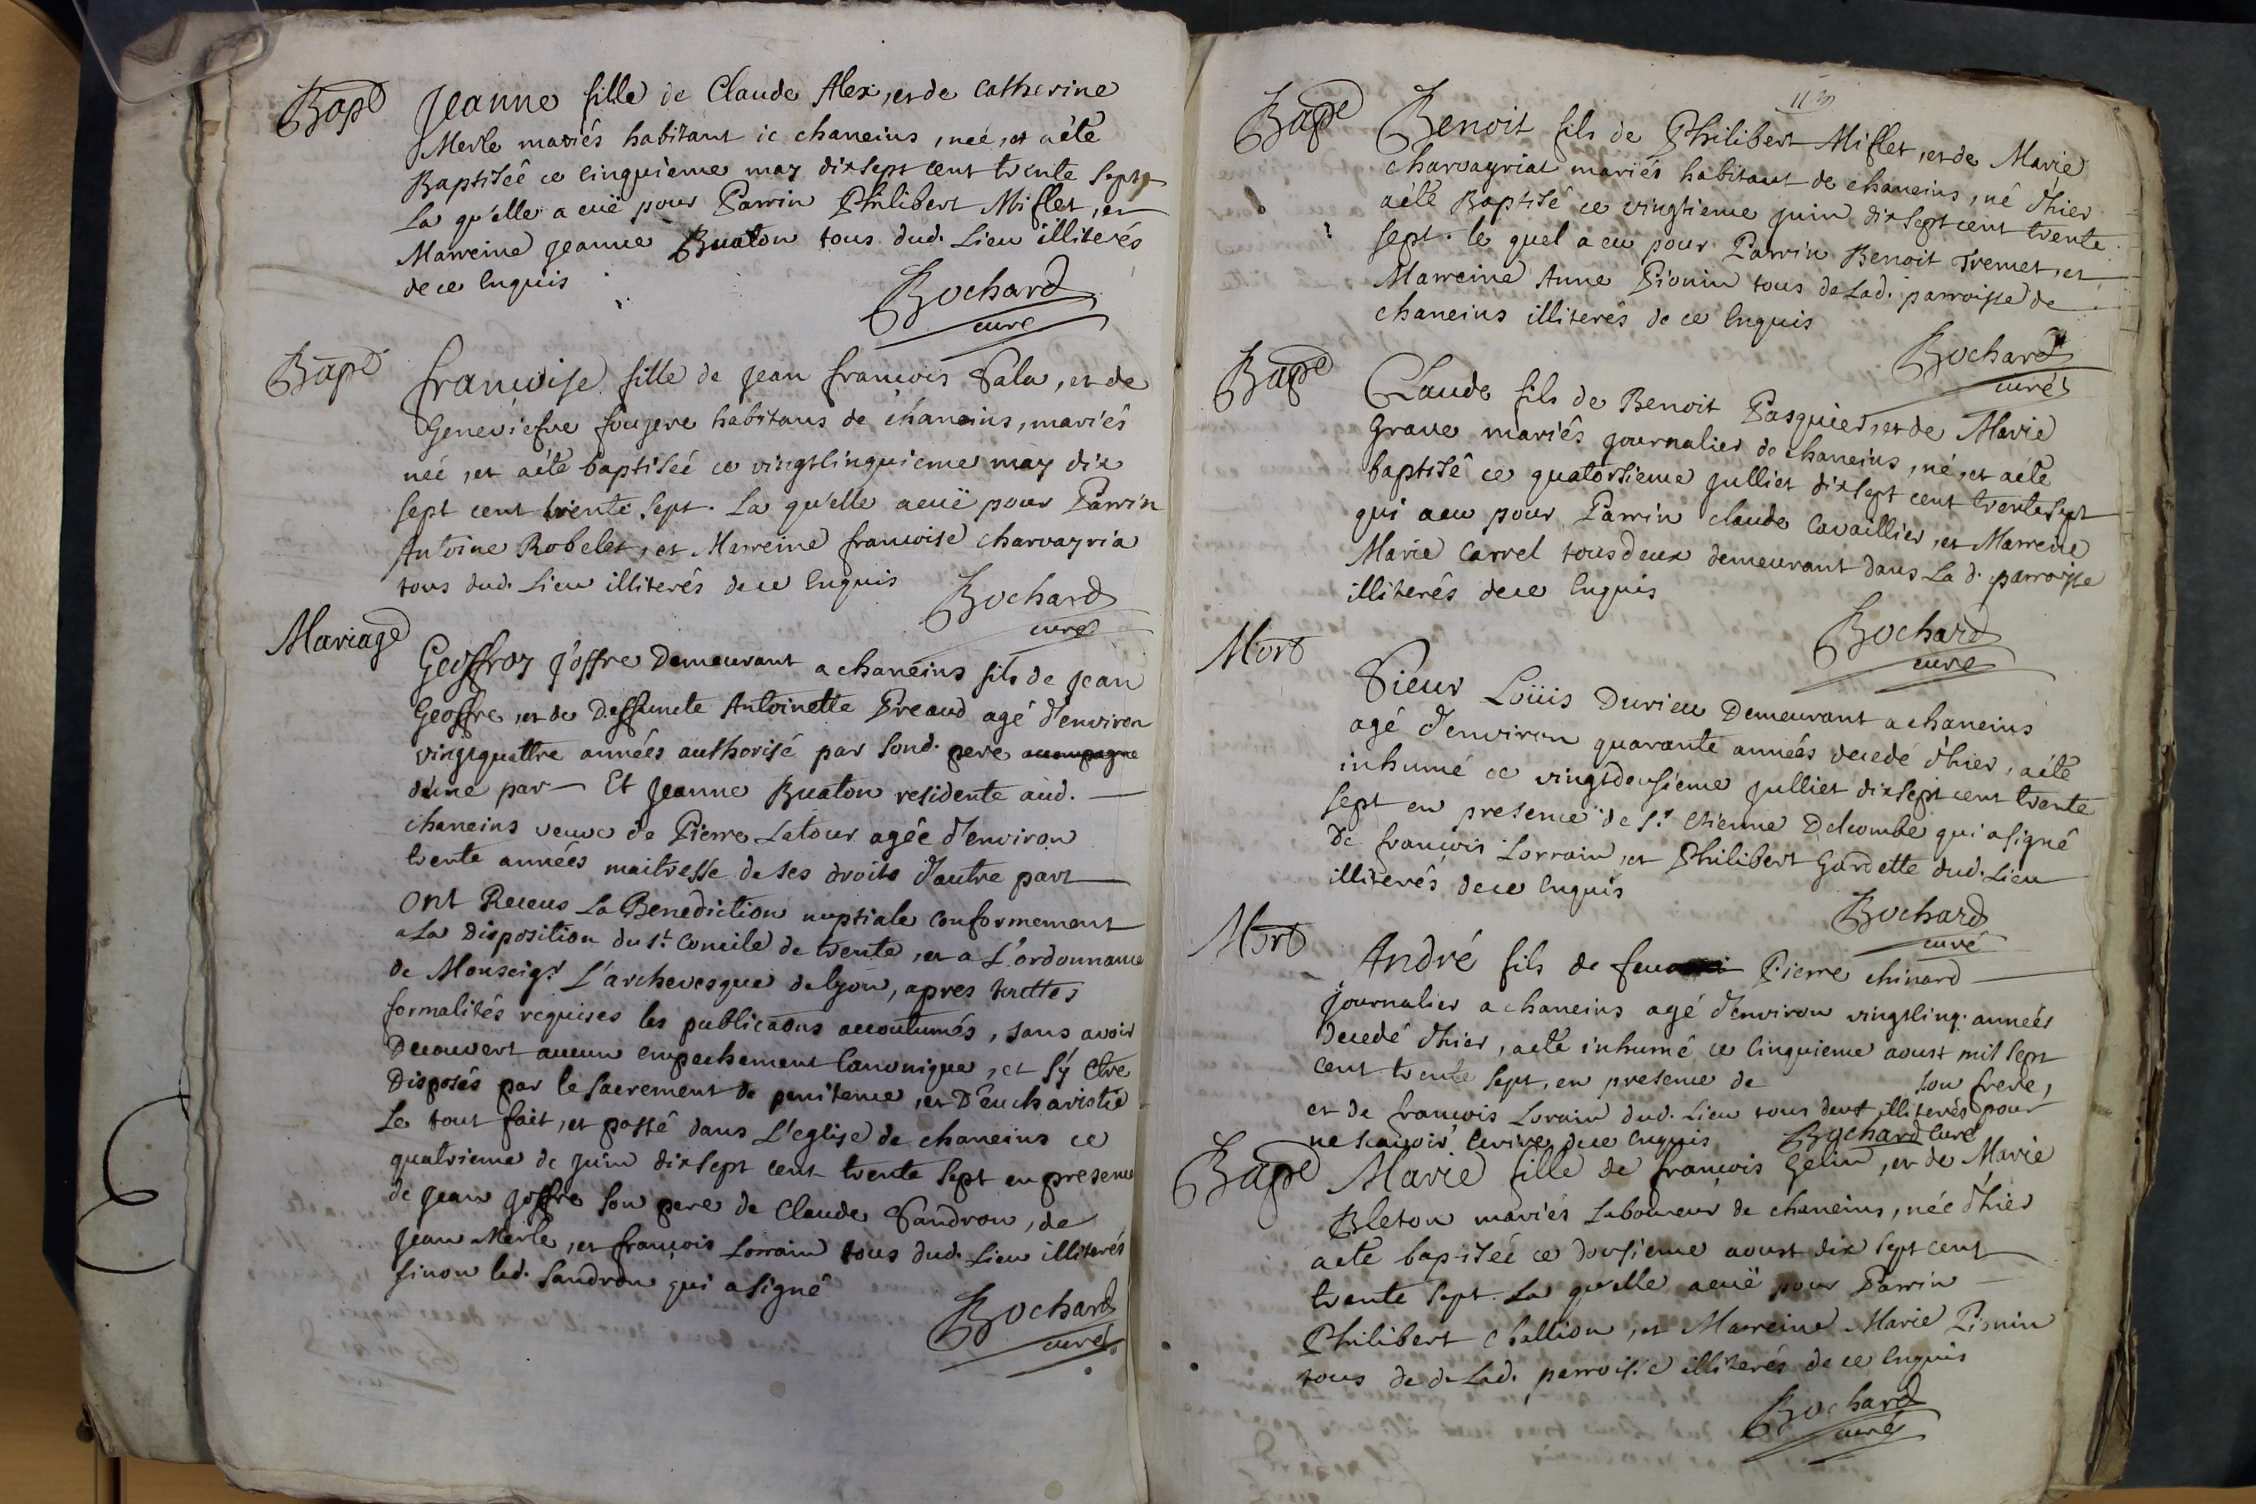 Bapt Jeanne fille de Claude Alex, et de Catherine
Merle mariés habitant ic chaneins, neé, et aété
Baptiseé ce cinquieme may dixsept cent trente sept
La qu'elle a euë pour Parrin Philibert Miflet, et
Marreine Jeanne Buaton tous dud. Lieu illiterés
de ce Enquis
Bochard
curé
Bapt francoise fille de Jean francois Sala, et de
Geneviefve fougere habitans de chaneins, mariés
neé, et aété baptiseé ce vingtcinquieme may dix
sept cent trente sept. La qu'elle aeuë pour Parrin
Antoine Robelet, et Marreine francoise charvayria
tous dud. Lieu illiterés de ce Enquis
Bochard
curé
Mariage
Geoffroy Joffre Demeurant a chaneins fils de Jean
Geoffre, et de Deffuncte Antoinette Preaud agé d'environ
vingtquattre années authorisé par sond. pere accompagne
d'une par Et Jeanne Buaton residente aud.
chaneins veuve de Pierre Latour agée d'environ
trente années maitresse de ses droits d'autre part
Ont Receus La Benediction nuptiale conformement
a La disposition du st. Concile de trente, et a L'ordonnance
de Monseigr. L'archevesque de lyon, apres touttes
formalités requises les publicaons accoutumés, sans avoir
Decouvert aucun empechement Canonique, et s'y etre
Disposés par le sacrement de penitence, et D'eucharistie
Le tout fait, et passé dans L'eglise de chaneins ce
quatrieme de juin dixsept cent trente sept en presence
de Jean Joffre son pere de Claude Sandron, de
Jean Merle, et francois Lorrain tous dud. Lieu illiterés
sinon led. Sandron qui asigné
Bochard
curé
Bapt Benoit fils de Philibert Miflet, et de Marie
charvayriat mariés habitant de chaneins, né d'hier
aété Baptisé ce vingtieme juin dixsept cent trente
sept. le quel a eu pour Parrin Benoit Tremet, et
Marreine Anne Pionin tous de Lad. parroisse de
chaneins illiterés de ce Enquis
Bochard
curé
Bapt Claude fils de Benoit Pasquier, et de Marie
Grave mariés journalier de chaneins, né, et aété
baptisé ce quatorsieme julliet dixsept cent trentesept
qui aeu pour Parrin claude Cavaillier, et Marreine
Marie Carrel tous deux demeurant dans La d. parroisse
illiterés dece Enquis
Bochard
curé
Mort
Sieur Loüis Durieu Demeurant a chaneins
agé d'environ quarante années decedé d'hier, aété
inhumé ce vingtdeusieme julliet dixsept cent trente
sept en presence de Sr. Etienne Delcombe qui asigné
De francois Lorrain, et Philibert Gardette dud. Lieu
illiterés dece Enquis
Bochard
curé
Mort
André fils de feu Pierre chinard
journalier a chaneins agé d'environ vingtcinq. années
decedé d'hier, aété inhumé ce Cinquieme aoust mil sept
cent trente sept, en presence de son frere,
et de francois Lorrain dud. Lieu tous deux illiterés pour
ne scavoir Ecrire dece Enquis Bochard Curé
Bapt Marie fille de francois Gelin, et de Marie
Bleton mariés Laboureur de chaneins, née d'hier
aété baptiseé ce dousieme aoust dix sept cent
trente sept. La qu'elle aeuë pour Parrin
Philibert Challion, et Marreine Marie Pionin
tous de de Lad. parroisse illiterés de ce Enquis
Bochard
curé